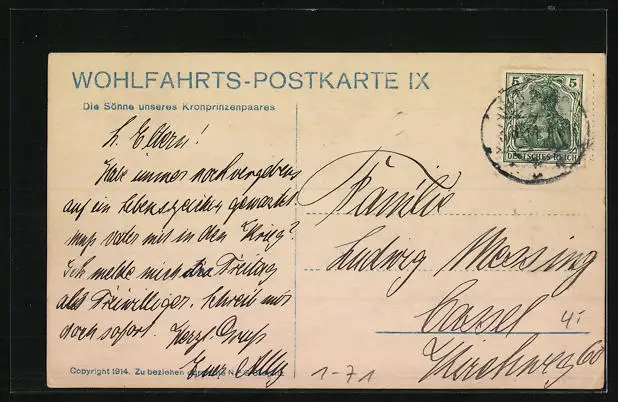 WOHLFAHRTS-POSTKARTE IX
Die Söhne unseres Kronprinzenpaares
5 5
DEUTSCHES REICH
L. Eltern!
Habe immer noch vergebens
auf ein Lebenszeichen gewartet
muss Vater mit in den Krieg?
Ich melde mich Freitag
als Freiwilliger. Schreib mir
doch sofort. Herzl. Gruss
Euer Willy
Familie
Ludwig Messing
Cassel
Kirchweg 60
Copyright 1914. Zu beziehen
1-71